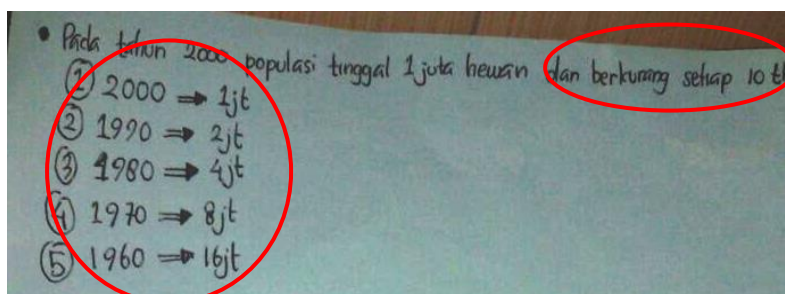 • Pada tahun 2000 populasi tinggal 1 juta hewan dan berkurang setiap 10 th
① 2000 ⇒ 1jt
② 1990 ⇒ 2jt
③ 1980 ⇒ 4jt
④ 1970 ⇒ 8jt
⑤ 1960 ⇒ 16jt